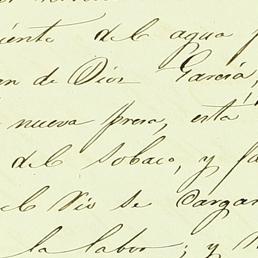 iento del agua
an de Dios García,
nueva presa, está
del sobaco, y
el Rio se cargar
la labor; y